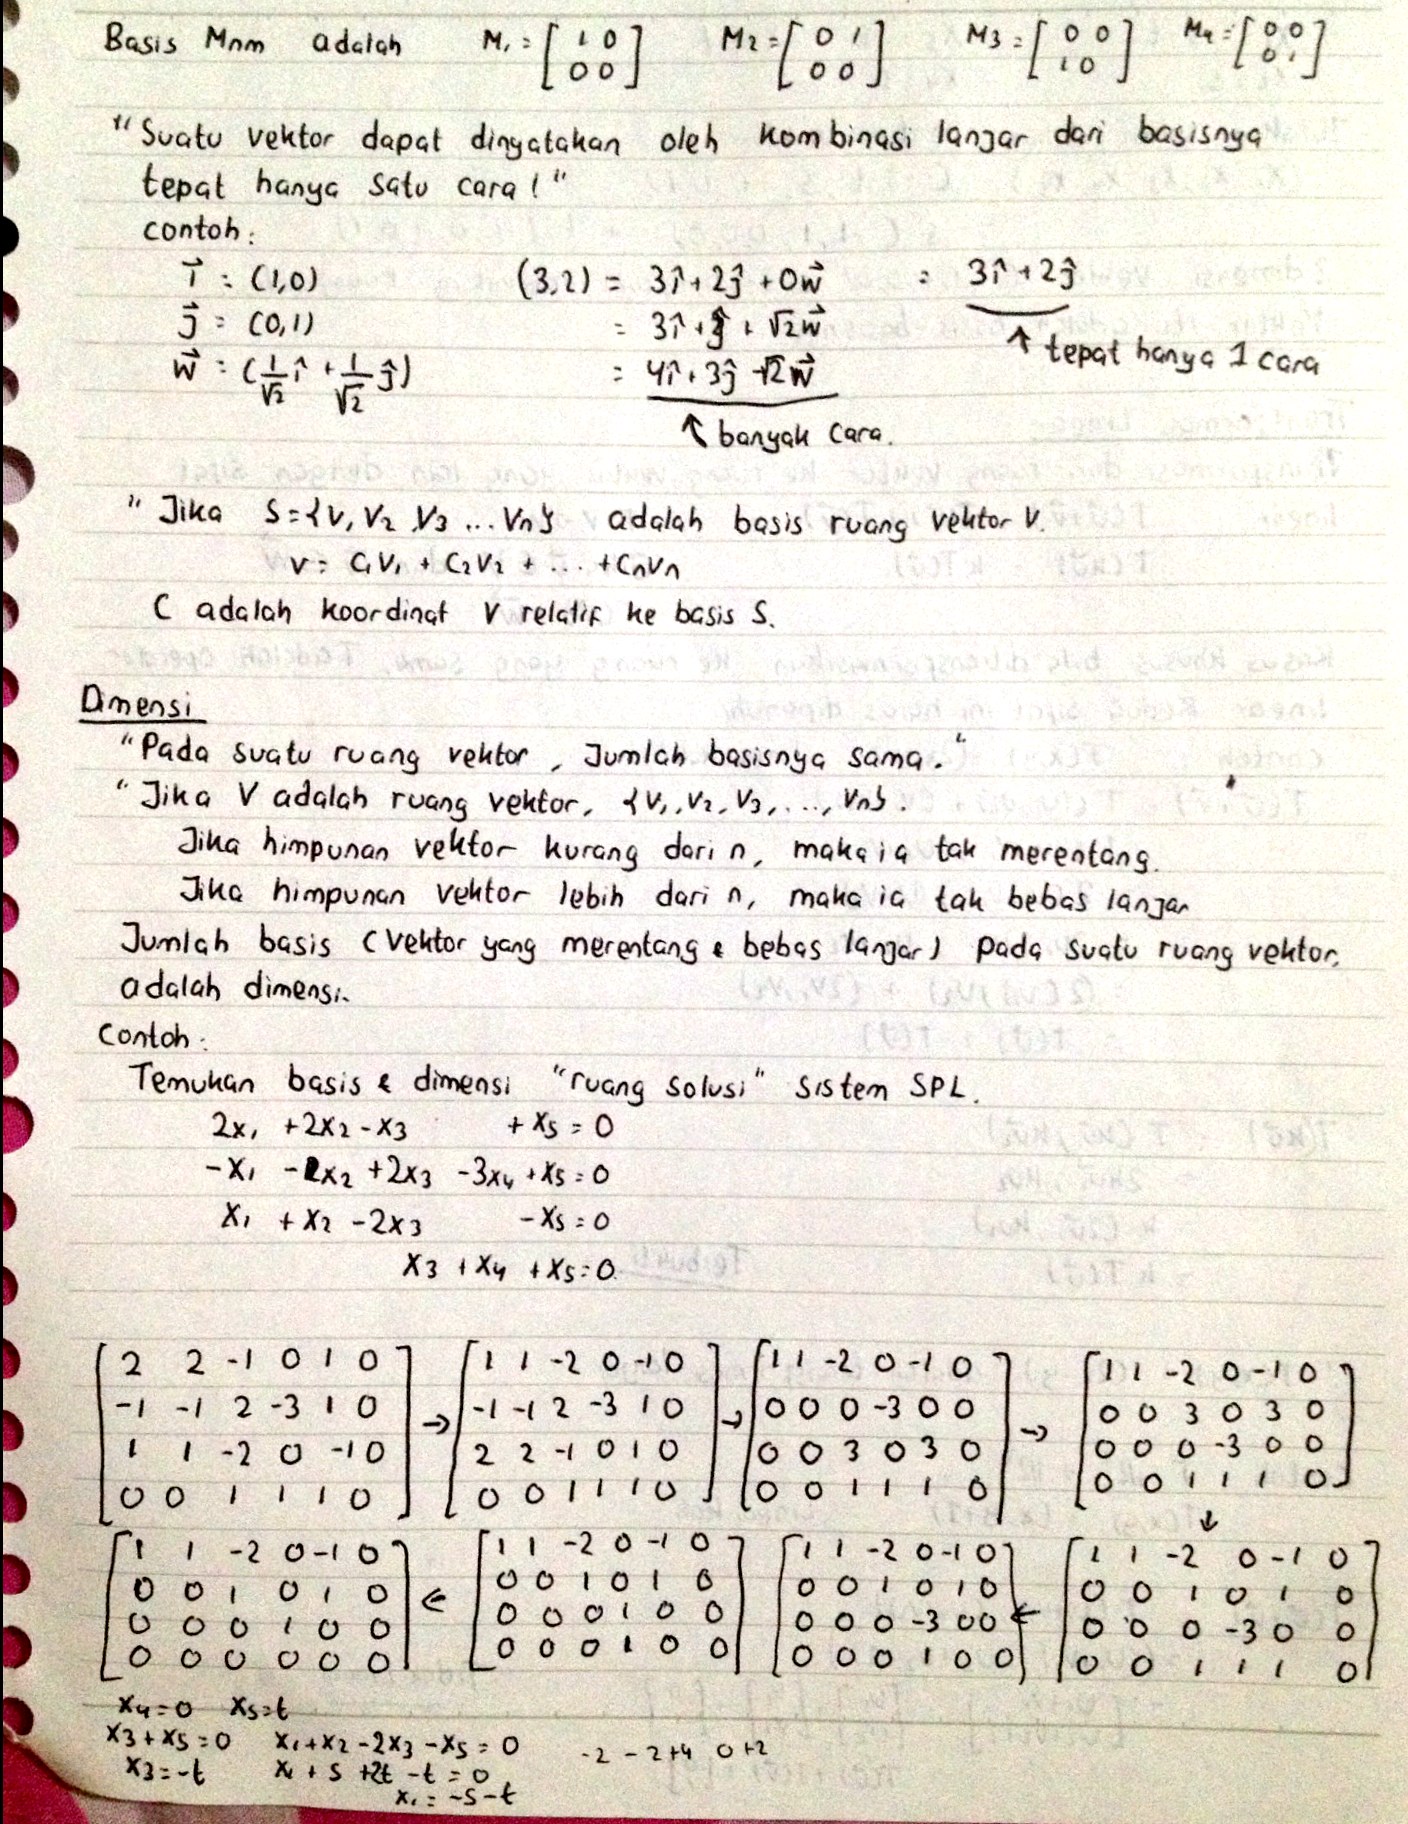 Basis Mnm adalah M₁ = [ 1 0 ; 0 0 ] M₂ = [ 0 1 ; 0 0 ] M3 = [ 0 0 ; 1 0 ] M4 = [ 0 0 ; 0 1 ]
"Suatu vektor dapat dinyatakan oleh kombinasi lanjar dari basisnya
tepat hanya satu cara!"
contoh:
i⃗ = (1,0) (3,2) = 3î + 2ĵ + 0w⃗ = 3î + 2ĵ
j⃗ = (0,1) = 3î + ĵ + √2w⃗
↑ tepat hanya 1 cara
w⃗ = (1/√2 î + 1/√2 ĵ) = 4î + 3ĵ - √2w⃗
↑ banyak cara.
"Jika S = {V₁ V₂ V3 ... Vn} adalah basis ruang vektor V.
v = C₁V₁ + C₂V₂ + ... + CnVn
C adalah koordinat V relatif ke basis S.
Dimensi
"Pada suatu ruang vektor, Jumlah basisnya sama."
"Jika V adalah ruang vektor, {V₁, V₂, V3, ..., Vn}.
Jika himpunan vektor kurang dari n, maka ia tak merentang.
Jika himpunan vektor lebih dari n, maka ia tak bebas lanjar
Jumlah basis (vektor yang merentang & bebas lanjar) pada suatu ruang vektor,
adalah dimensi.
Contoh:
Temukan basis & dimensi "ruang solusi" sistem SPL.
2x₁ + 2x2 - x3 + x5 = 0
-x₁ - x2 + 2x3 - 3x4 + x5 = 0
x₁ + x2 - 2x3 - x5 = 0
x3 + x4 + x5 = 0
[ 2 2 -1 0 1 0 ] [ 1 1 -2 0 -1 0 ] [ 1 1 -2 0 -1 0 ] [ 1 1 -2 0 -1 0 ]
[ -1 -1 2 -3 1 0 ] → [ -1 -1 2 -3 1 0 ] → [ 0 0 0 -3 0 0 ] → [ 0 0 3 0 3 0 ]
[ 1 1 -2 0 -1 0 ] [ 2 2 -1 0 1 0 ] [ 0 0 3 0 3 0 ] [ 0 0 0 -3 0 0 ]
[ 0 0 1 1 1 0 ] [ 0 0 1 1 1 0 ] [ 0 0 1 1 1 0 ] [ 0 0 1 1 1 0 ]
↓
[ 1 1 -2 0 -1 0 ] [ 1 1 -2 0 -1 0 ] [ 1 1 -2 0 -1 0 ] [ 1 1 -2 0 -1 0 ]
[ 0 0 1 0 1 0 ] ← [ 0 0 1 0 1 0 ] [ 0 0 1 0 1 0 ] [ 0 0 1 0 1 0 ]
[ 0 0 0 1 0 0 ] [ 0 0 0 1 0 0 ] [ 0 0 0 -3 0 0 ] ← [ 0 0 0 -3 0 0 ]
[ 0 0 0 0 0 0 ] [ 0 0 0 1 0 0 ] [ 0 0 0 1 0 0 ] [ 0 0 1 1 1 0 ]
x4 = 0 x5 = t
x3 + x5 = 0 x₁ + x2 - 2x3 - x5 = 0 -2 - 2+4 0+2
x3 = -t x₁ + s + 2t - t = 0
x₁ = -s - t